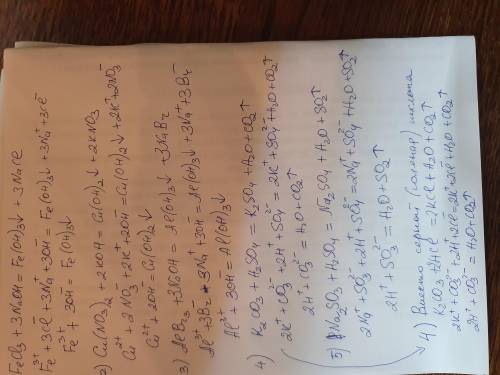 FeCl₃ + 3NaOH = Fe(OH)₃↓ + 3NaCl
Fe³⁺ + 3Cl⁻ + 3Na⁺ + 3OH⁻ = Fe(OH)₃↓ + 3Na⁺ + 3Cl⁻
Fe³⁺ + 3OH⁻ = Fe(OH)₃↓
2) Cu(NO₃)₂ + 2KOH = Cu(OH)₂↓ + 2KNO₃
Cu²⁺ + 2NO₃⁻ + 2K⁺ + 2OH⁻ = Cu(OH)₂↓ + 2K⁺ + 2NO₃⁻
Cu²⁺ + 2OH⁻ = Cu(OH)₂↓
3) AlBr₃ + 3NaOH = Al(OH)₃↓ + 3NaBr
Al³⁺ + 3Br⁻ + 3Na⁺ + 3OH⁻ = Al(OH)₃↓ + 3Na⁺ + 3Br⁻
Al³⁺ + 3OH⁻ = Al(OH)₃↓
4) K₂CO₃ + H₂SO₄ = K₂SO₄ + H₂O + CO₂↑
2K⁺ + CO₃²⁻ + 2H⁺ + SO₄²⁻ = 2K⁺ + SO₄²⁻ + H₂O + CO₂↑
2H⁺ + CO₃²⁻ = H₂O + CO₂↑
5) Na₂SO₃ + H₂SO₄ = Na₂SO₄ + H₂O + SO₂↑
2Na⁺ + SO₃²⁻ + 2H⁺ + SO₄²⁻ = 2Na⁺ + SO₄²⁻ + H₂O + SO₂↑
2H⁺ + SO₃²⁻ = H₂O + SO₂↑
4) Вместо серной (соляная) кислота
K₂CO₃ + 2HCl = 2KCl + H₂O + CO₂↑
2K⁺ + CO₃²⁻ + 2H⁺ + 2Cl⁻ = 2K⁺ + 2Cl⁻ + H₂O + CO₂↑
2H⁺ + CO₃²⁻ = H₂O + CO₂↑